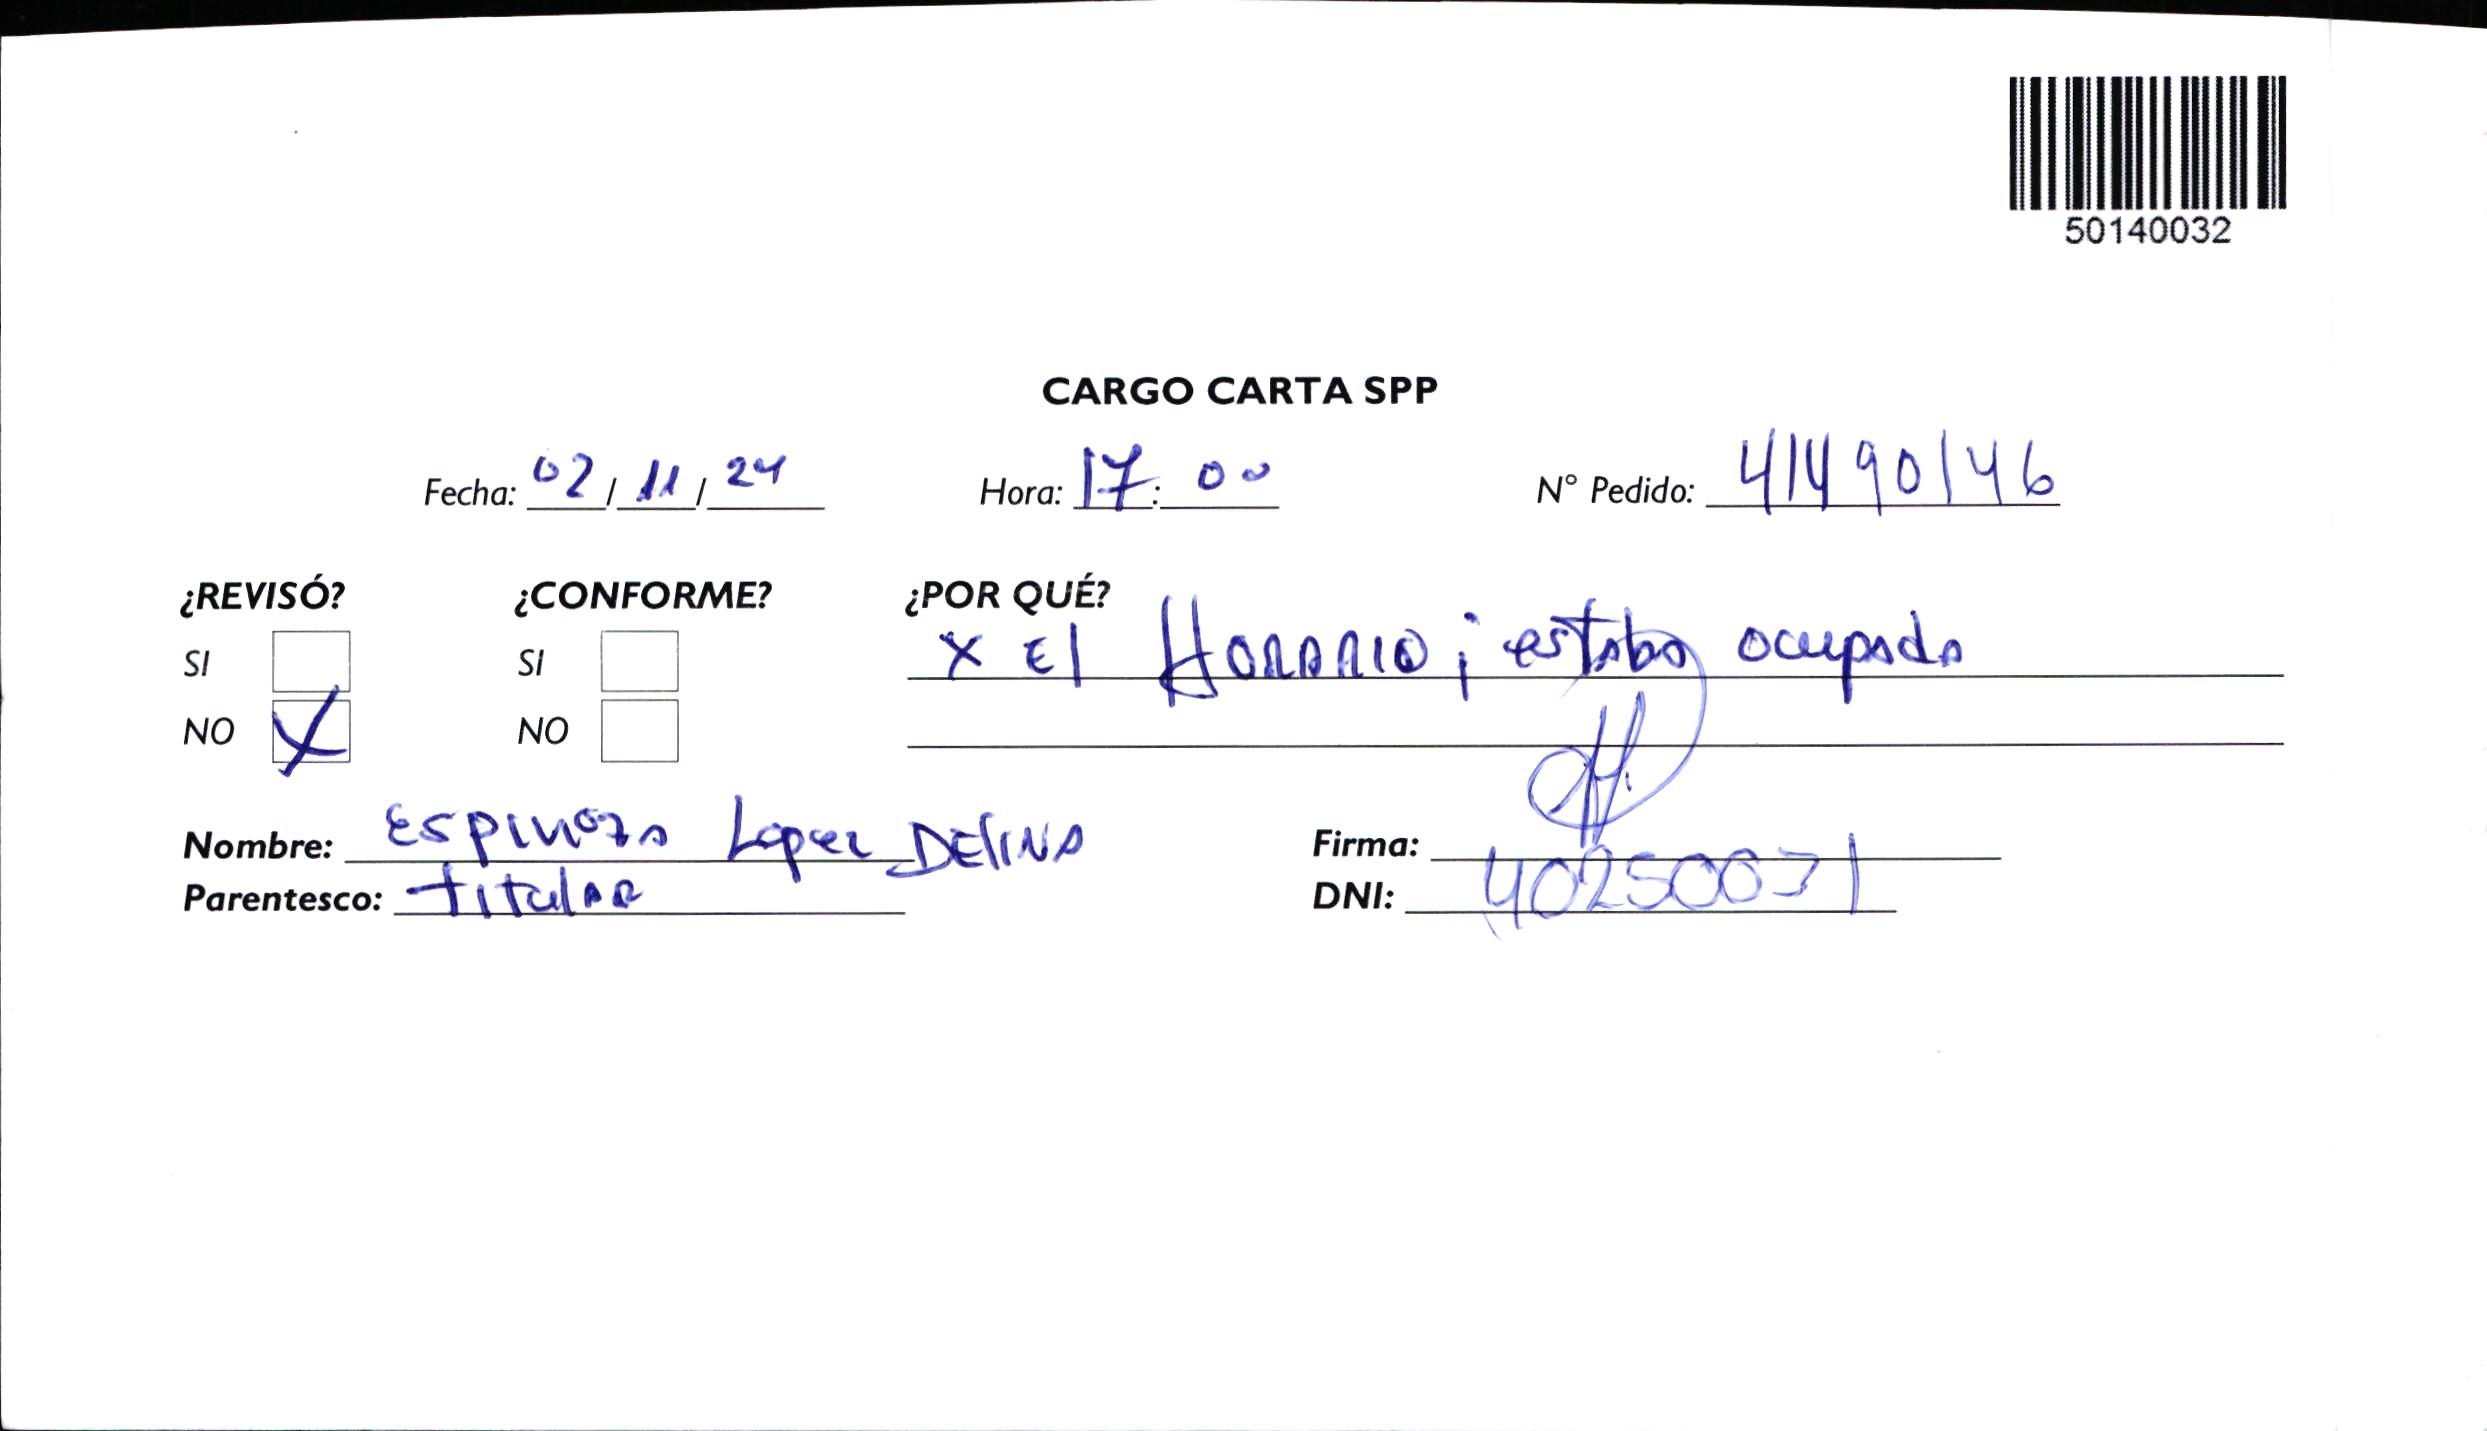 50140032
CARGO CARTA SPP
Fecha: 02/11/24 Hora: 17:00 N° Pedido: 41490146
¿REVISÓ? ¿CONFORME? ¿POR QUÉ?
SI SI x El HORARIO ; estaba ocupada
NO X NO
Nombre: Espinoza Lopez DElINA Firma:
Parentesco: titular DNI: 40250071